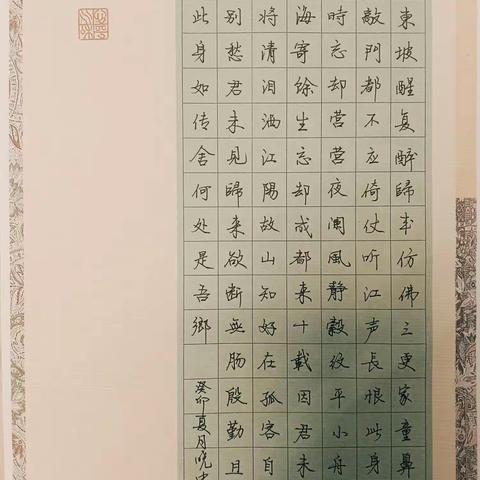 東坡醒复醉歸来仿佛三更家童鼻
敲門都不应倚仗听江声長恨此身
時忘却营营夜闌風静縠纹平小舟
海寄馀生忘却成都来十載因君未
将清泪洒江陽故山知好在孤客自
别愁君未见歸来欲断無肠殷勤且
此身如传舍何处是吾鄉
癸卯夏月